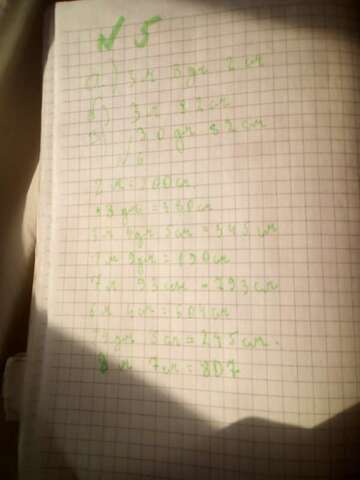 № 5
а) 3м 8дм 2см
б) 3м 82см
в) 30дм 82см
№ 6
2м = 200см
38дм = 380см
3м 4дм 5см = 345см
7м 9дм = 790см
7м 93см = 793см
6м 4см = 604см
5см = 245см.
8м 7см = 807